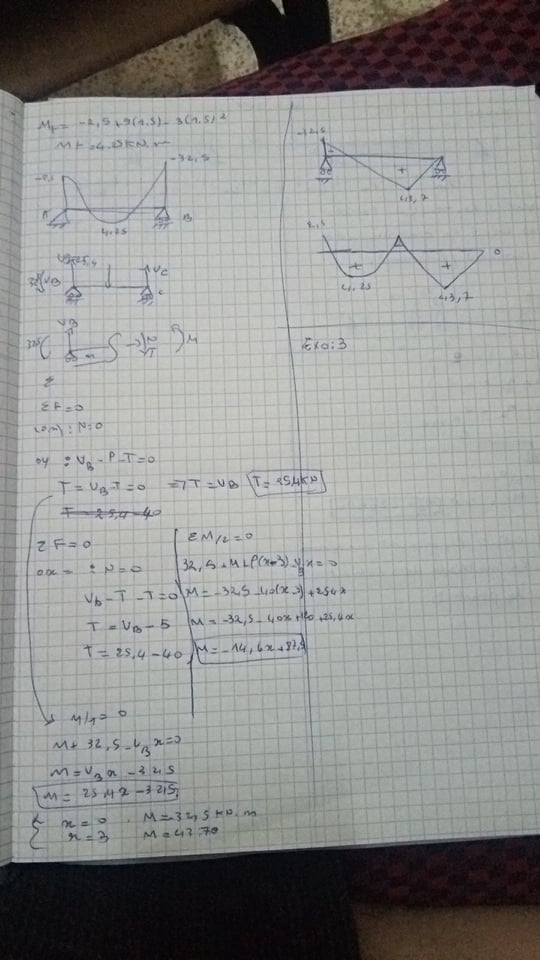 = -2,5 + 9(1,5) - 3(1,5)²
= 4.25 KN.m
-32,5
A
B
4,25
VB
VC
C
VB
N
VT
M
Σ
ΣF=0
: N=0
oy : VB - P - T=0
T = VB - T = 0 => T = VB T = 25,4 KN
T = 25,4 - 40
ΣF=0
ox = : N=0
VB - T - T=0
T = VB - 5
T = 25,4 - 40
ΣM/2 = 0
32,5 + M + P(x-3) - VB x = 0
M = -32,5 - 40(x-3) + 25,4x
M = -32,5 - 40x + 120 + 25,4x
M = -14,6x + 87,5
M/1 = 0
M + 32,5 - VB x = 0
M = VB x - 32,5
M = 25,4x - 32,5
x = 0 M = -32,5 KN.m
x = 3 M = 43.70
-32,5
+
43,7
2,5
0
+
+
4,25
43,7
Exo:3